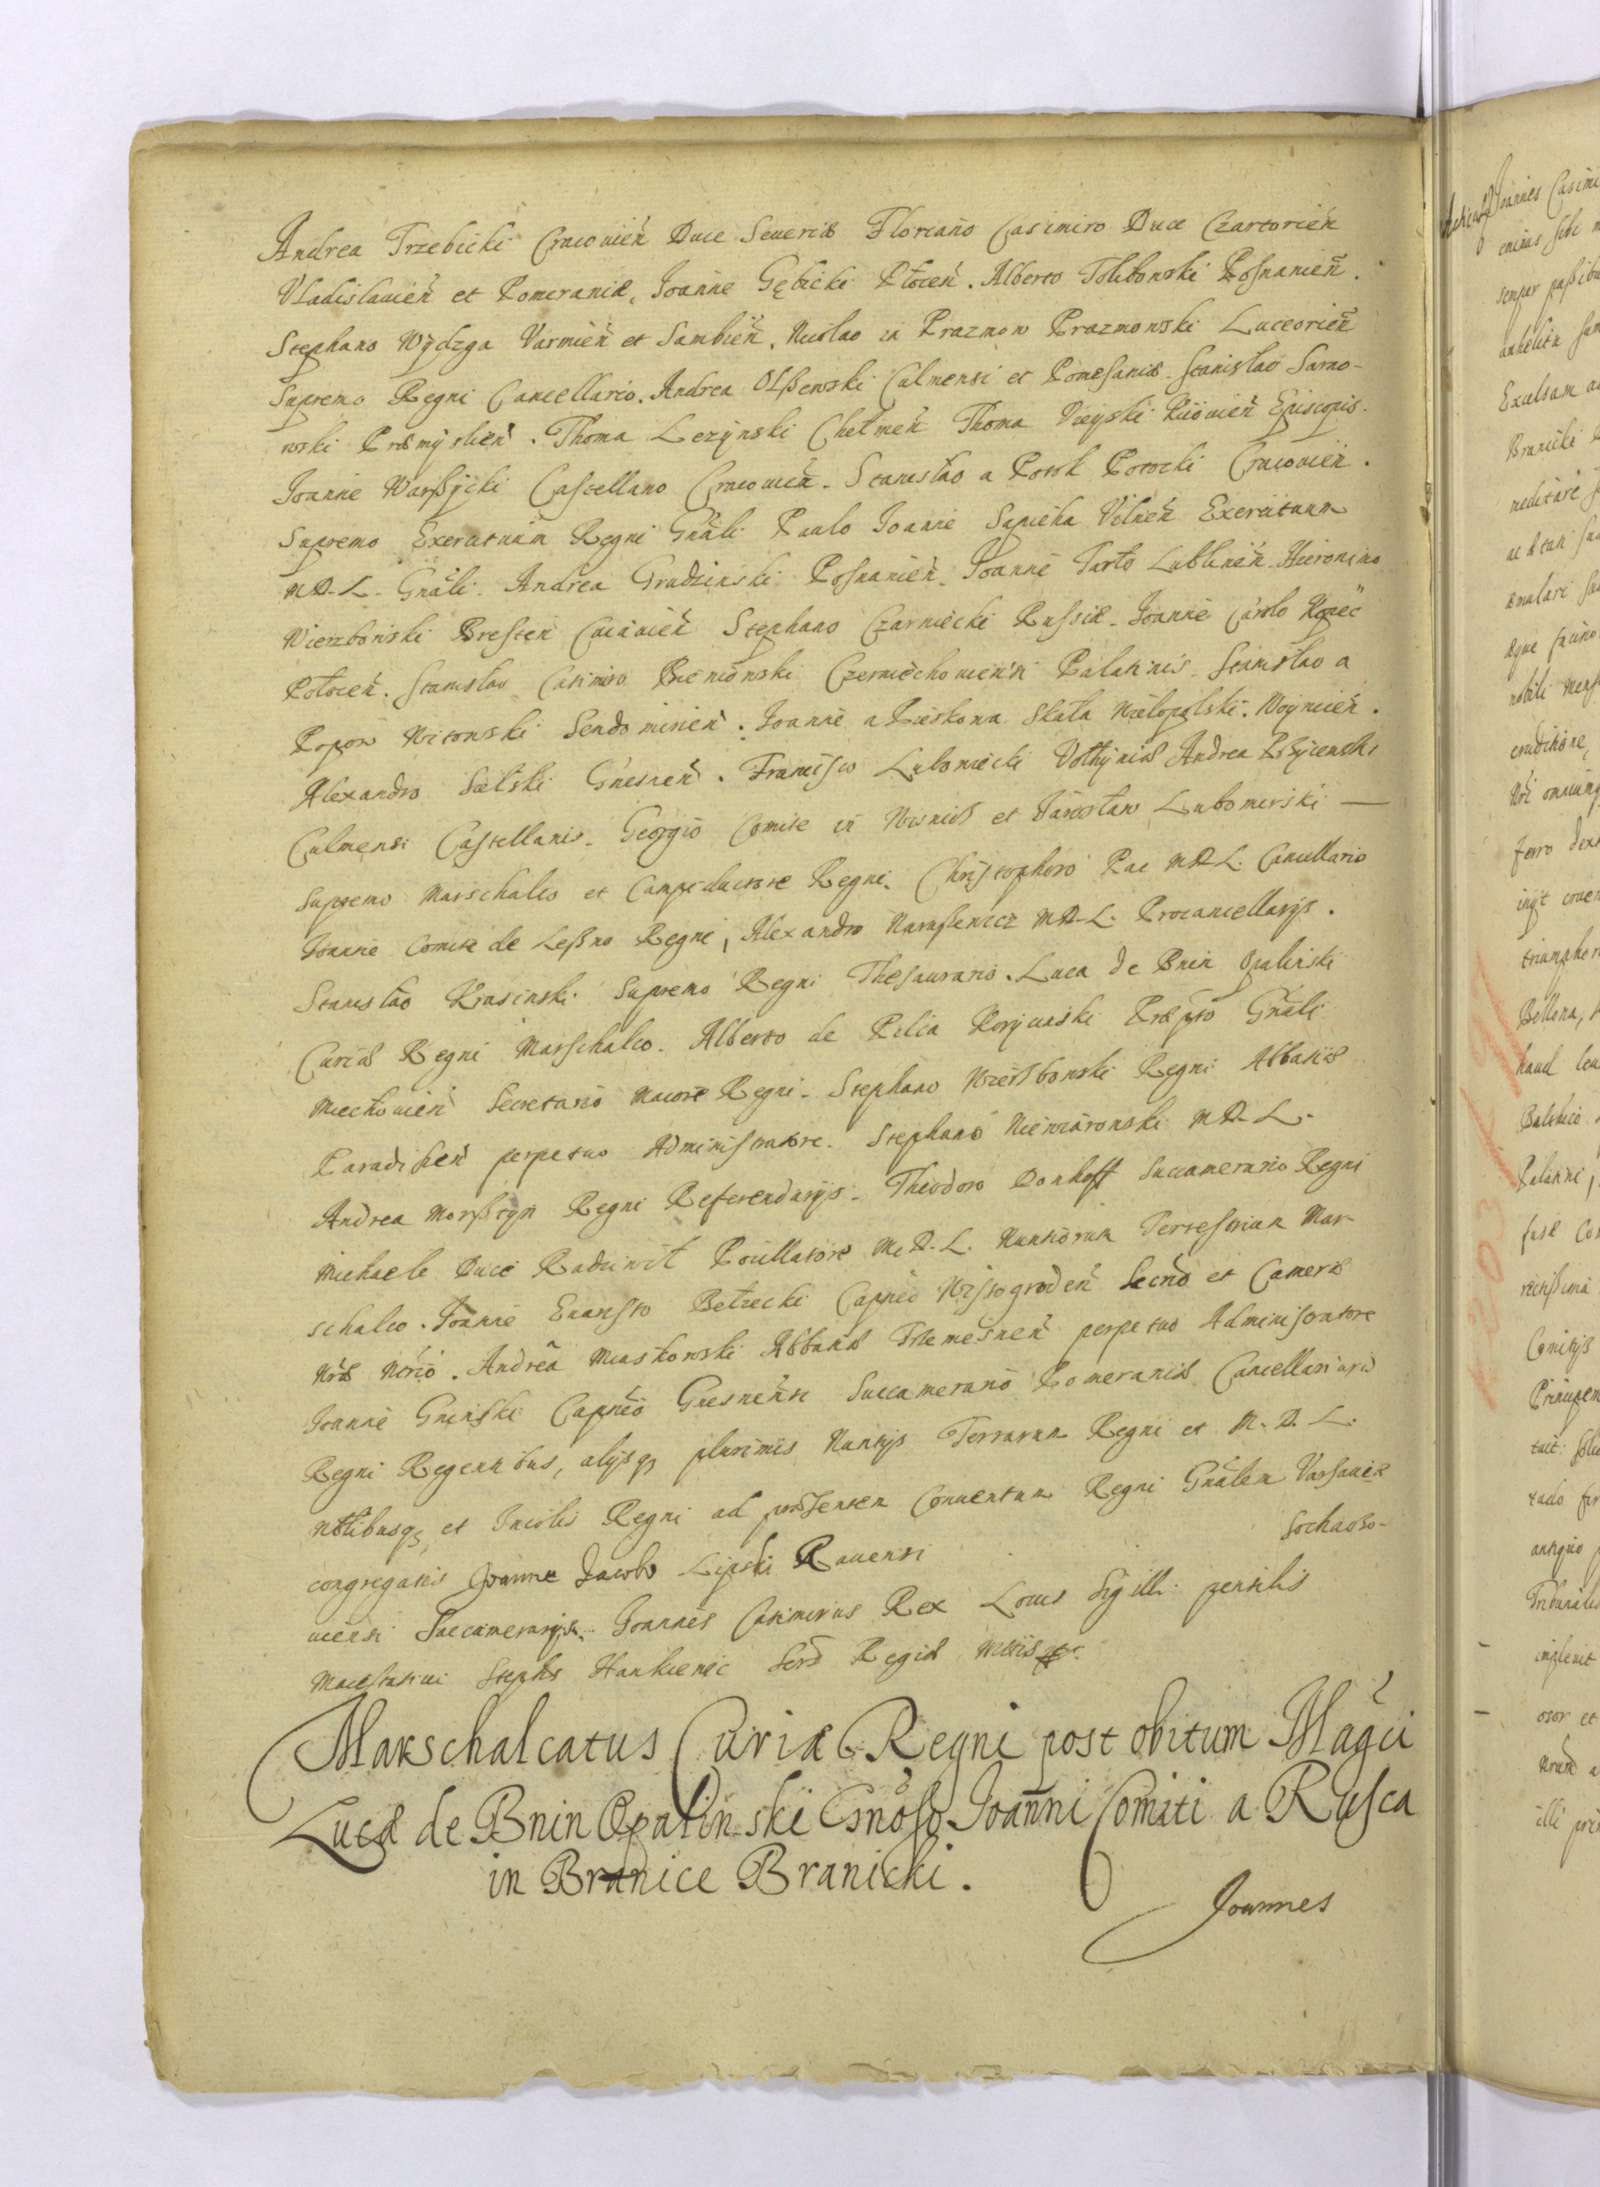 Andrea Trzebicki Cracovień Duce Severiæ Floriano Casimiro Duce Czartorień
Vladislavień et Pomeraniæ, Joanne Gębicki Płoceń. Alberto Tolibowski Posnanień.
Stephano Wydzga Varmień et Sambień. Nicolao in Prazmow Prazmowski Luceorień
Supremo Regni Cancellario. Andrea Olßewski Culmensi et Pomesaniæ. Stanislao Sarno-
wski Præmyslień. Thoma Lezynski Chelmeń Thoma Vieyski Kiiovień Episcopis.
Joanne Warßycki Castellano Cracovień. Stanislao a Potok Potocki Cracovień.
Supremo Exercituum Regni Gñali Paulo Joanne Sapieha Vilneń Exercituum
M.D.L. Gñali. Andrea Grudzinski Posnanień. Joanne Tarło Lublineń. Hieronimo
Wierzbowski Bresteń Cuiavień Stephano Czarniecki Russiæ. Joanne Carolo Kopeć
Połoceń. Stanislao Casimiro Bieniewski Czerniechoviensi Palatinis. Stanislao a
Popow Witowski Sendomirień. Joanne a Pieskowa Skała Wielopolski. Woynicień.
Alexandro Sielski Gnesneń. Francisco Lubowiecki Volhyniæ Andrea
Culmensi Castellanis. Georgio Comite in Wisnicz et Jarosław Lubomirski —
Supremo Marschalco et Campiductore Regni. Christophoro Pac M.D.L. Cancellario
Joanne Comite de Leßno Regni, Alexandro Narußewicz M.D.L. Procancellarijs.
Stanislao Krasinski Supremo Regni Thesaurario. Luca de Bnin Opalinski
Curiæ Regni Marschalco. Alberto de Pilca Koryciński Præpto Gñali
Miechovień Secretario Maiore Regni. Stephano Wierzbowski Regni Abbatiæ
Paradisień perpetuo Administratore. Stephano Niewiarowski M.D.L.
Andrea Morßtyn Regni Referendarijs. Theodoro Donhoff Succamerario Regni
Michaele Duce Radzivil Pocillatore M.D.L. Nuntiorum Terrestrium Mar-
schalco. Joanne Evansto Bełzecki Capneo Wissogrodeń Secrio et Cameræ
Nræ Nrio. Andrea Miaskowski Abbatiæ Trzemesneń perpetuo Administratore
Joanne Gninski Capneo Gnesnensi Succamerario Pomeraniæ Cancellariarũ
Regni Regentibus, alijsq plurimis Nuntijs Terrarum Regni et M.D.L.
Nbilibusq et Incolis Regni ad præsentem Conventum Regni Gñalem Varsaviæ
congregatis Joanne Jacobo Lipski Ravensi Sochaczo-
viensi Succamerarijs. Joannes Casimirus Rex Locus sigilli pensilis
Maiestativi Stephs Hankiewic Sers Regiæ Mttis
Marschalcatus Curiæ Regni post obitum Magci
Lucæ de Bnin Opalinski Gnoso Joanni Comiti a Rusca
in Branice Branicki.
Joannes